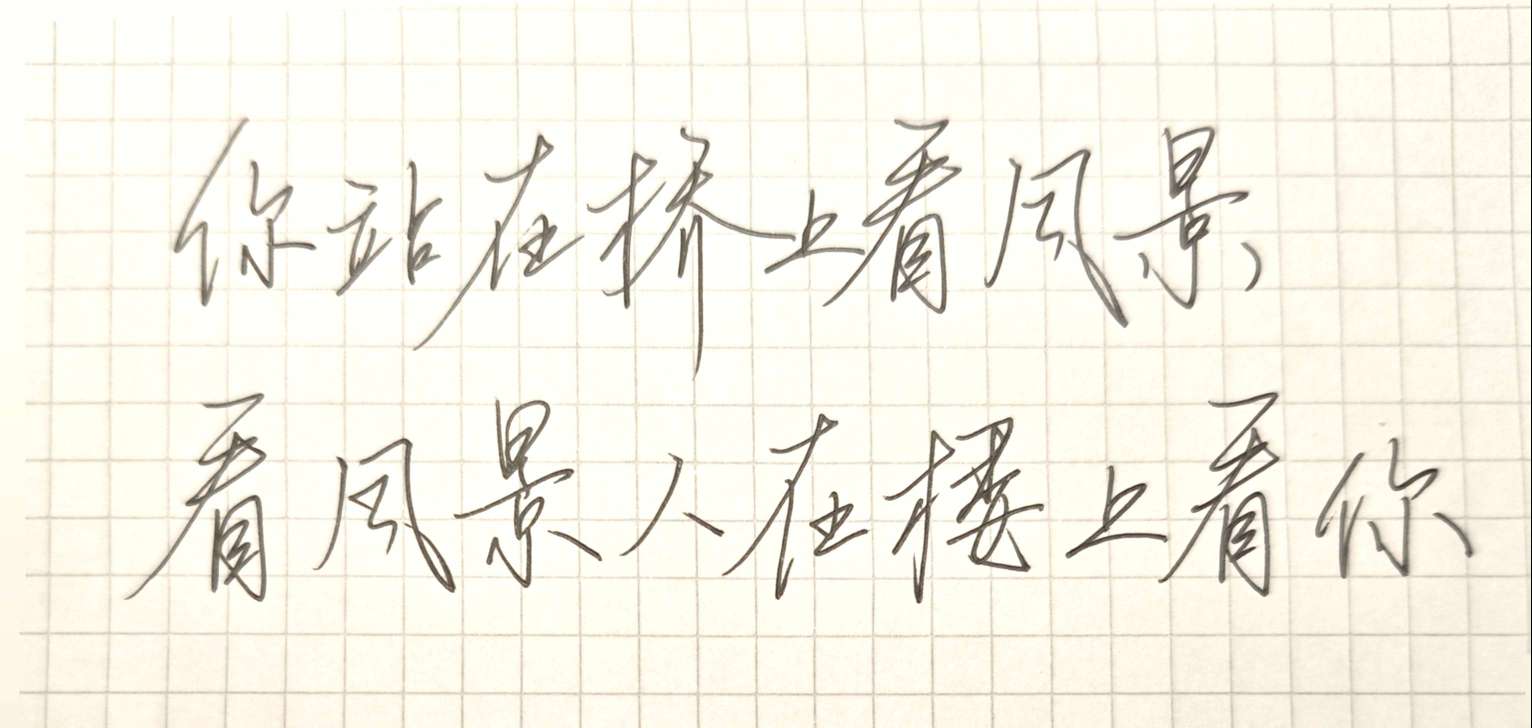 你站在桥上看风景，
看风景人在楼上看你